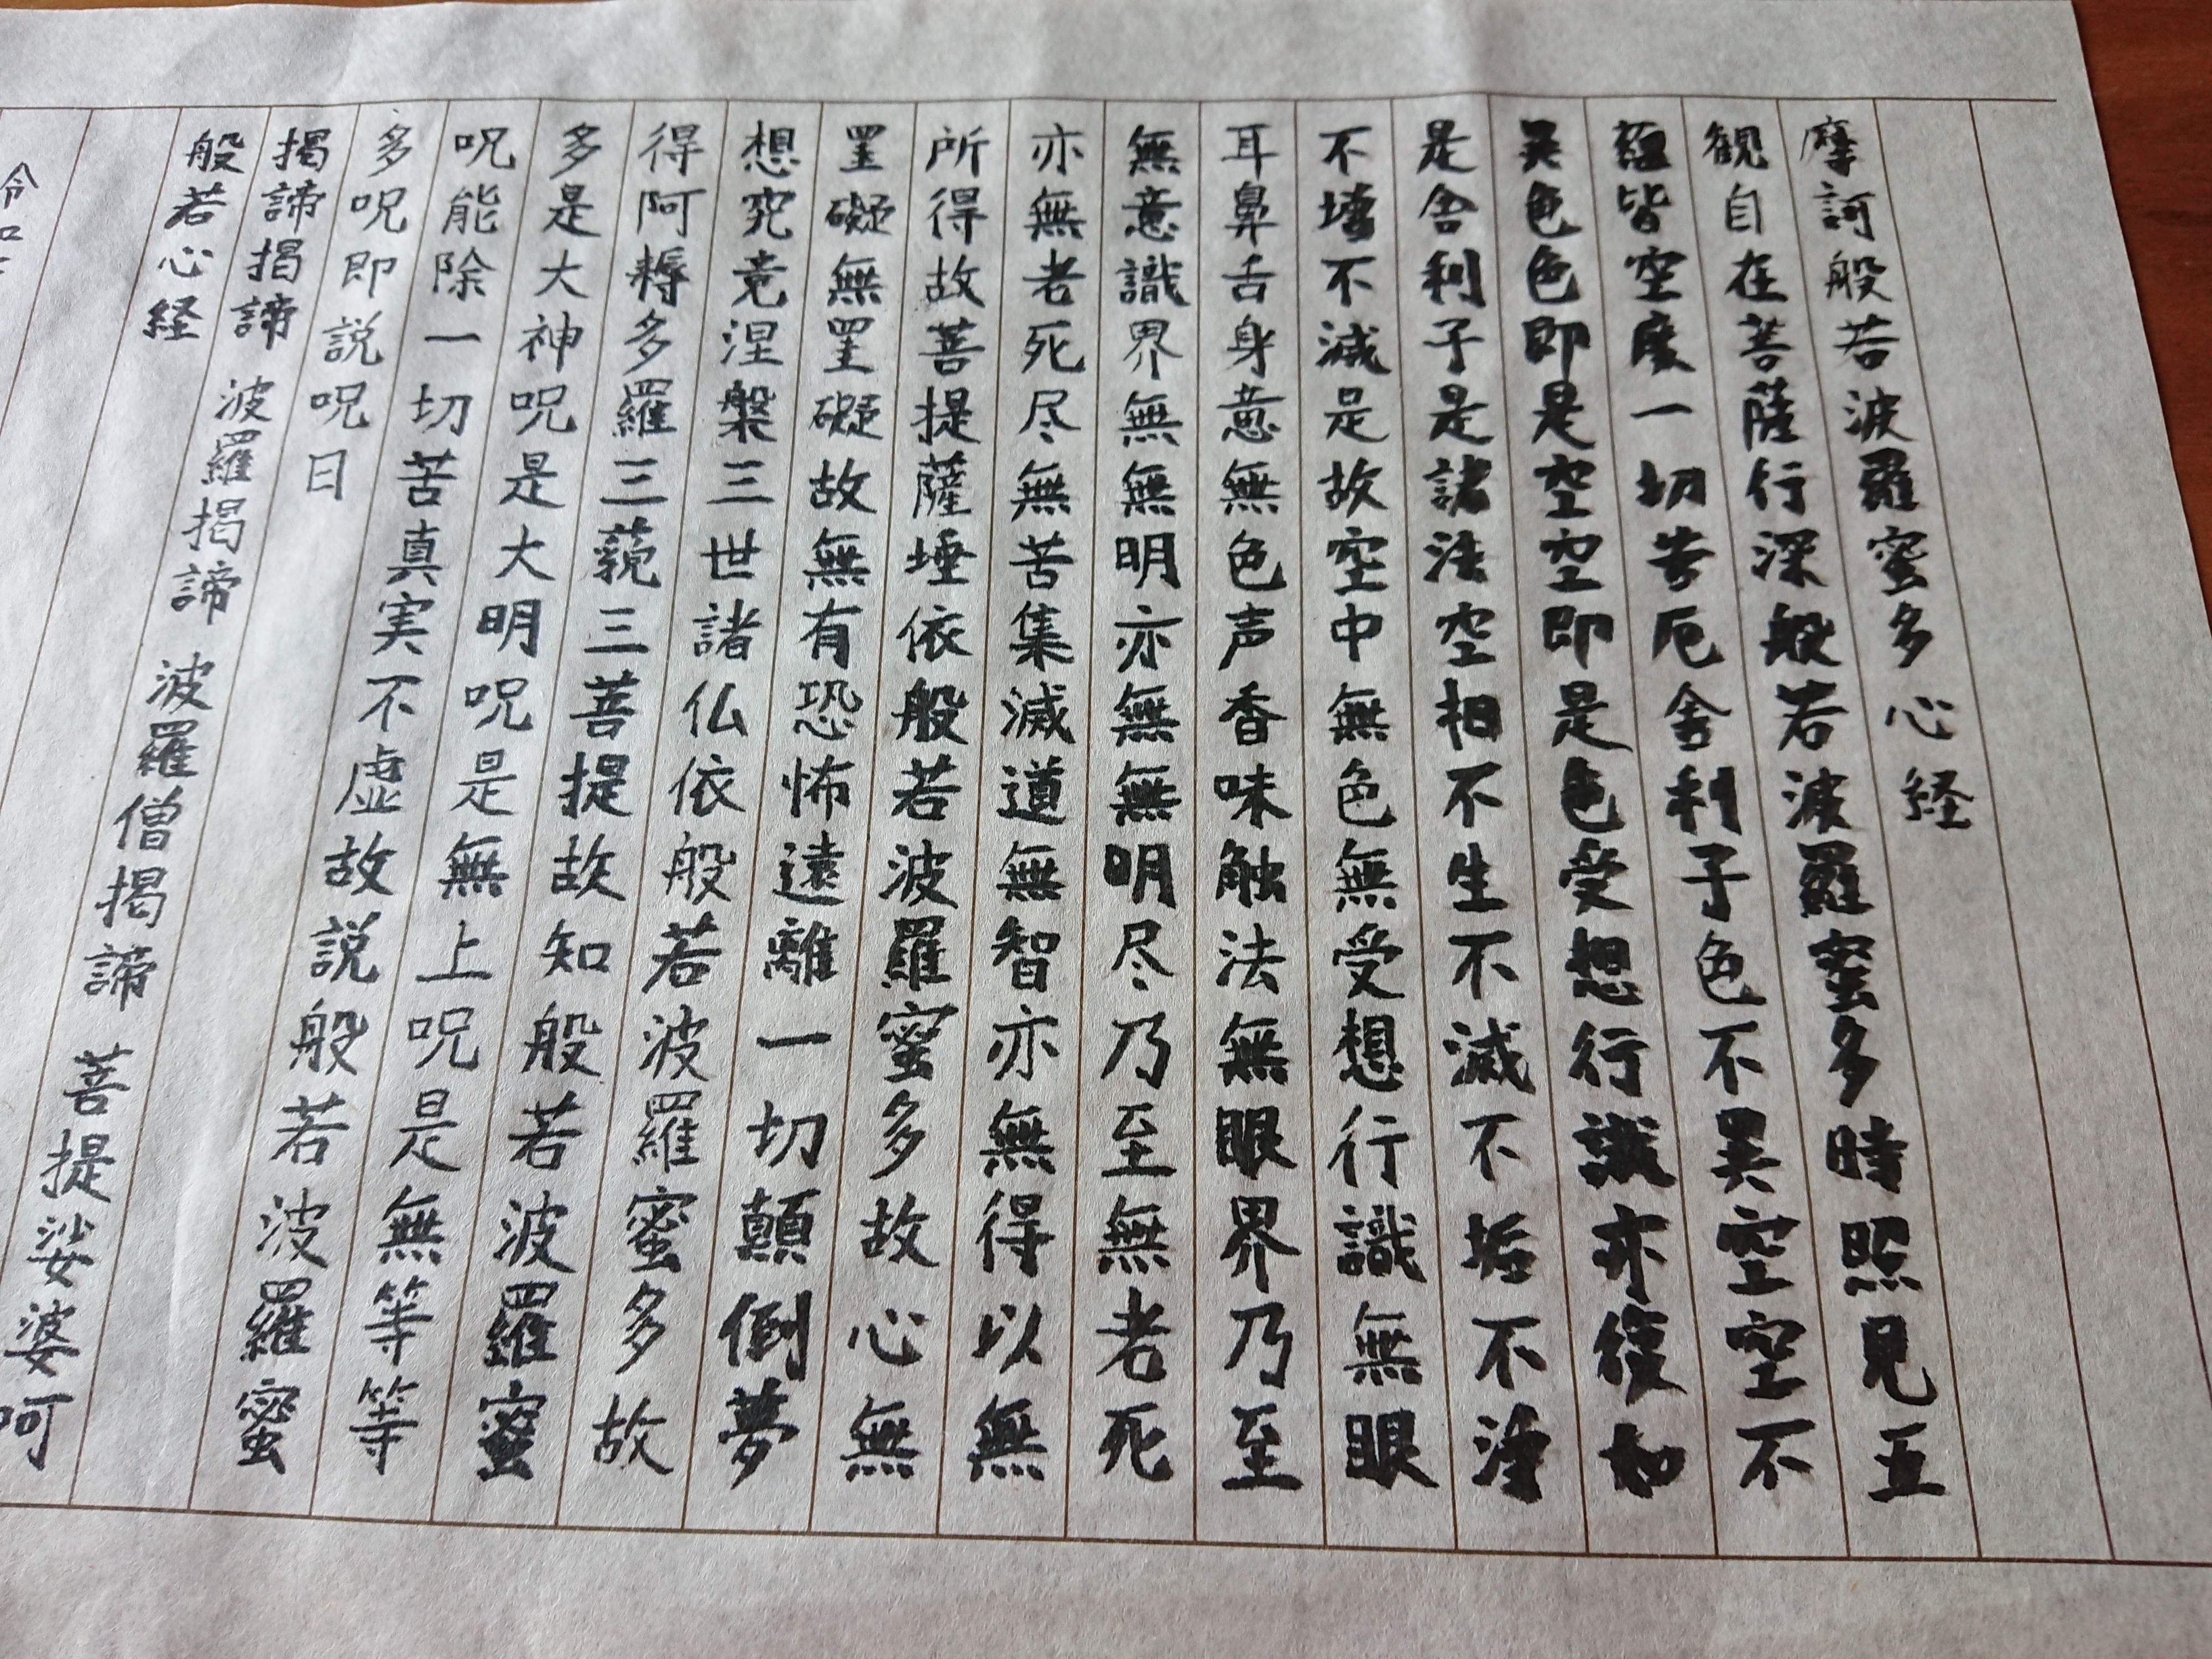 摩訶般若波羅蜜多心経
観自在菩薩行深般若波羅蜜多時照見五
蘊皆空度一切苦厄舎利子色不異空空不
異色色即是空空即是色受想行識亦復如
是舎利子是諸法空相不生不滅不垢不浄
不増不減是故空中無色無受想行識無眼
耳鼻舌身意無色声香味触法無眼界乃至
無意識界無無明亦無無明尽乃至無老死
亦無老死尽無苦集滅道無智亦無得以無
所得故菩提薩埵依般若波羅蜜多故心無
罣礙無罣礙故無有恐怖遠離一切顛倒夢
想究竟涅槃三世諸仏依般若波羅蜜多故
得阿耨多羅三藐三菩提故知般若波羅蜜
多是大神呪是大明呪是無上呪是無等等
呪能除一切苦真実不虚故説般若波羅蜜
多呪即説呪曰
掲諦掲諦 波羅掲諦 波羅僧掲諦 菩提娑婆呵
般若心経
令和